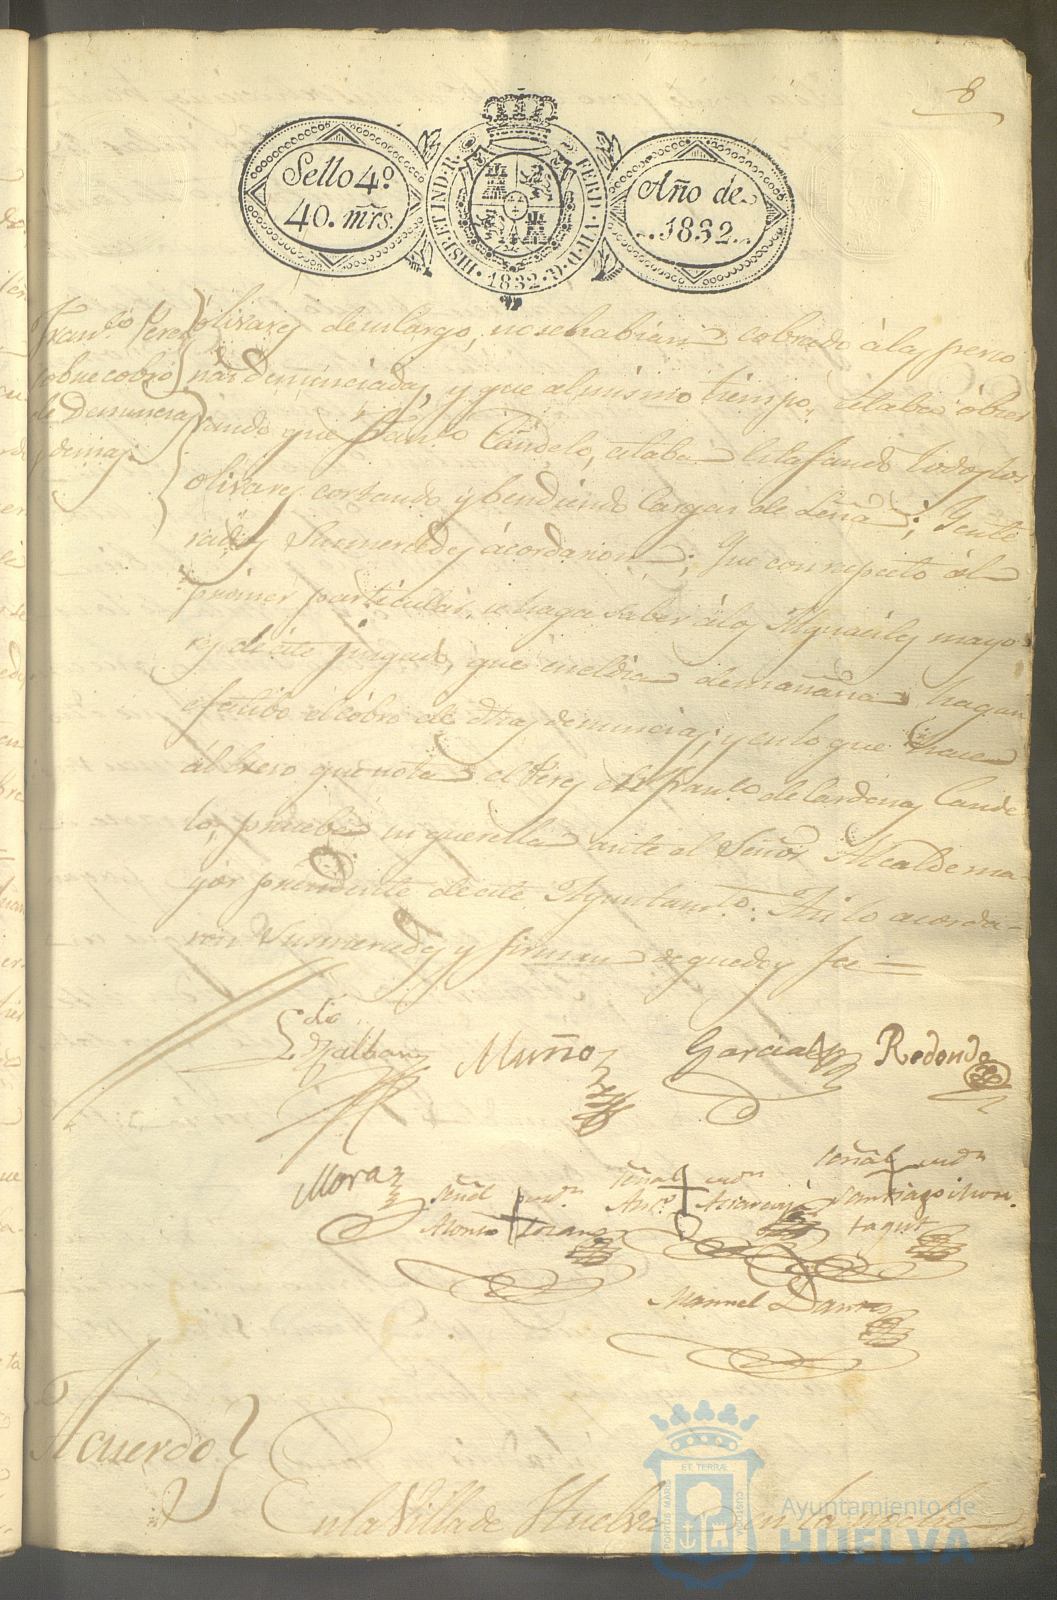 8
Sello 4º
40. mrs.
HISP. ET IND. R.
FERD. VII. D. G.
1832
Año de
1832
Franco Perez
sobre cobro
de denuncia
y demas
olivares de su largo, no se habian cobrado á las perso
nas denunciadas, y que al mismo tiempo, estaba óbser
vando que Franco Candelo, estaba todos los
olivares cortando y bendiendo cargas de Leña; Y ente
rados Sus mercedes ácordaron; Que con respecto ál
primer particular, se haga saber á los Alguaciles mayo
res de este juzgado, que en el dia de mañana hagan
efectibo el cobro de otras denuncias; y en lo que
que nota el Perez de Franco de Cardenas Cande
lo, su querella ante el Señor Alcalde ma
yor presidente de este Ayuntamto. Asi lo acorda-
ron Sus mercedes y firman de que doy fee
Ldo
Muñoz
Garcia
Redondo
Mora
Señal
Alonso Lozano
Señal
Anto
Señal
Santiago Mon
tagut
Manuel
Acuerdo
En la Villa de Huelva en la noche
PORTUS MARIS
ET TERRÆ
CUSTODIA
Ayuntamiento de
HUELVA